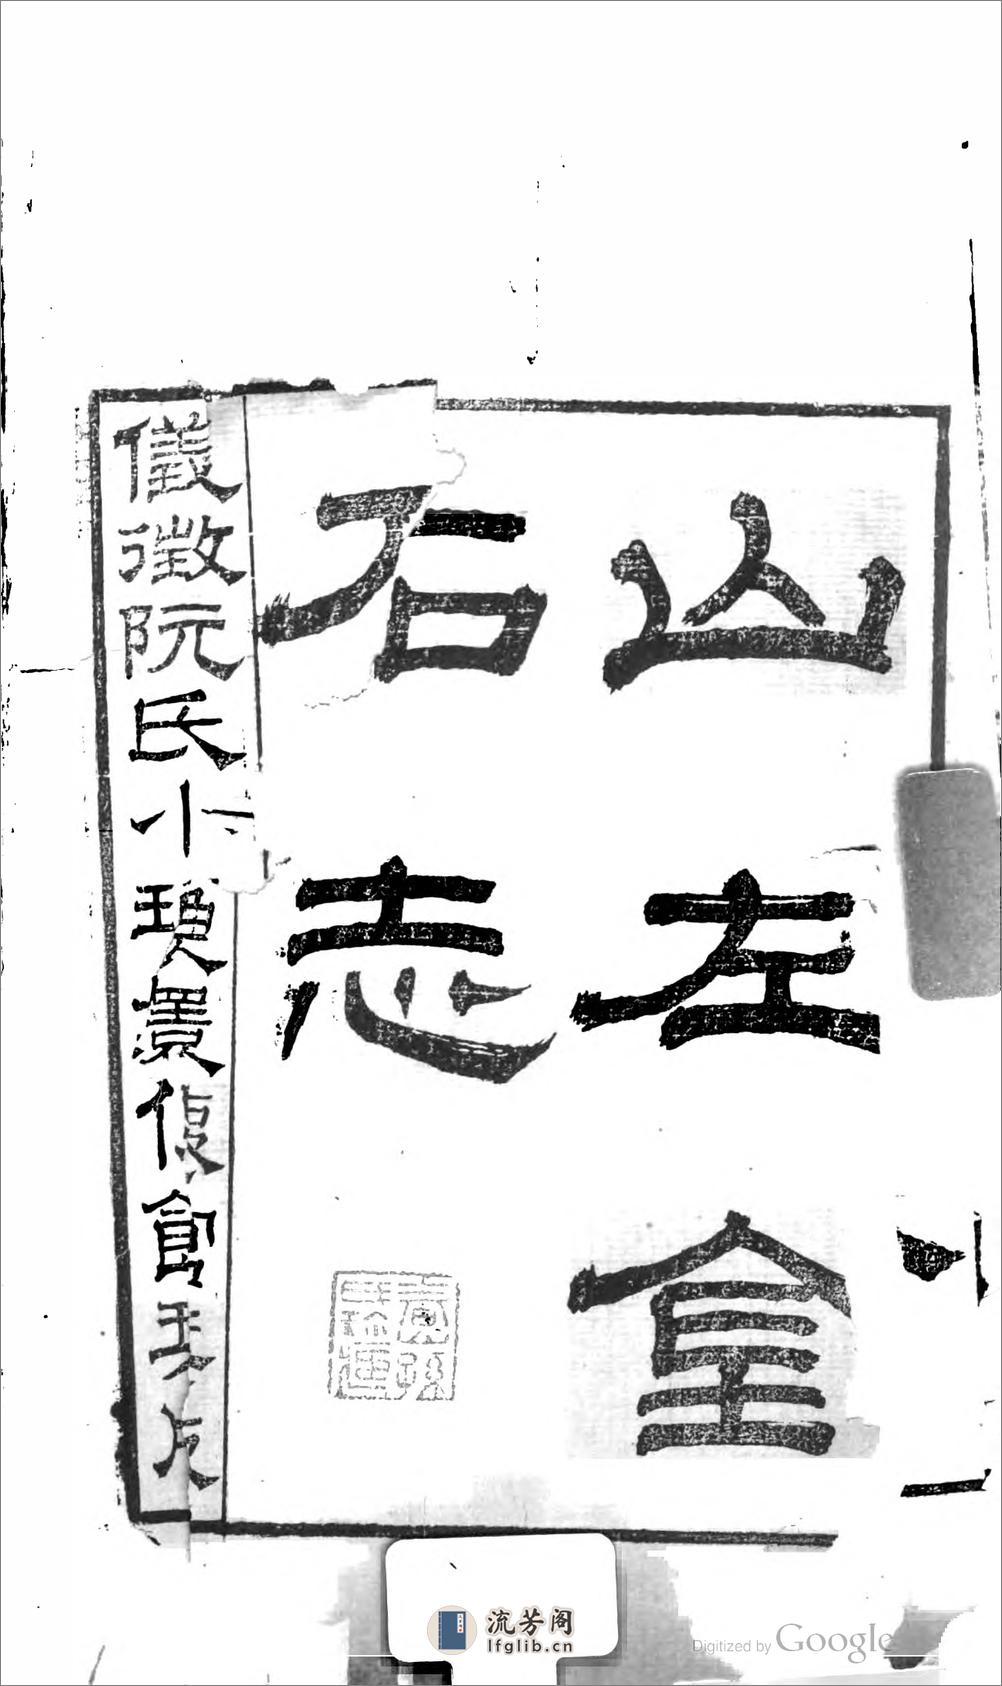 山左金
石志
儀徵阮氏小琅嬛僊館
流芳阁
lfglib.cn
Digitized by Google